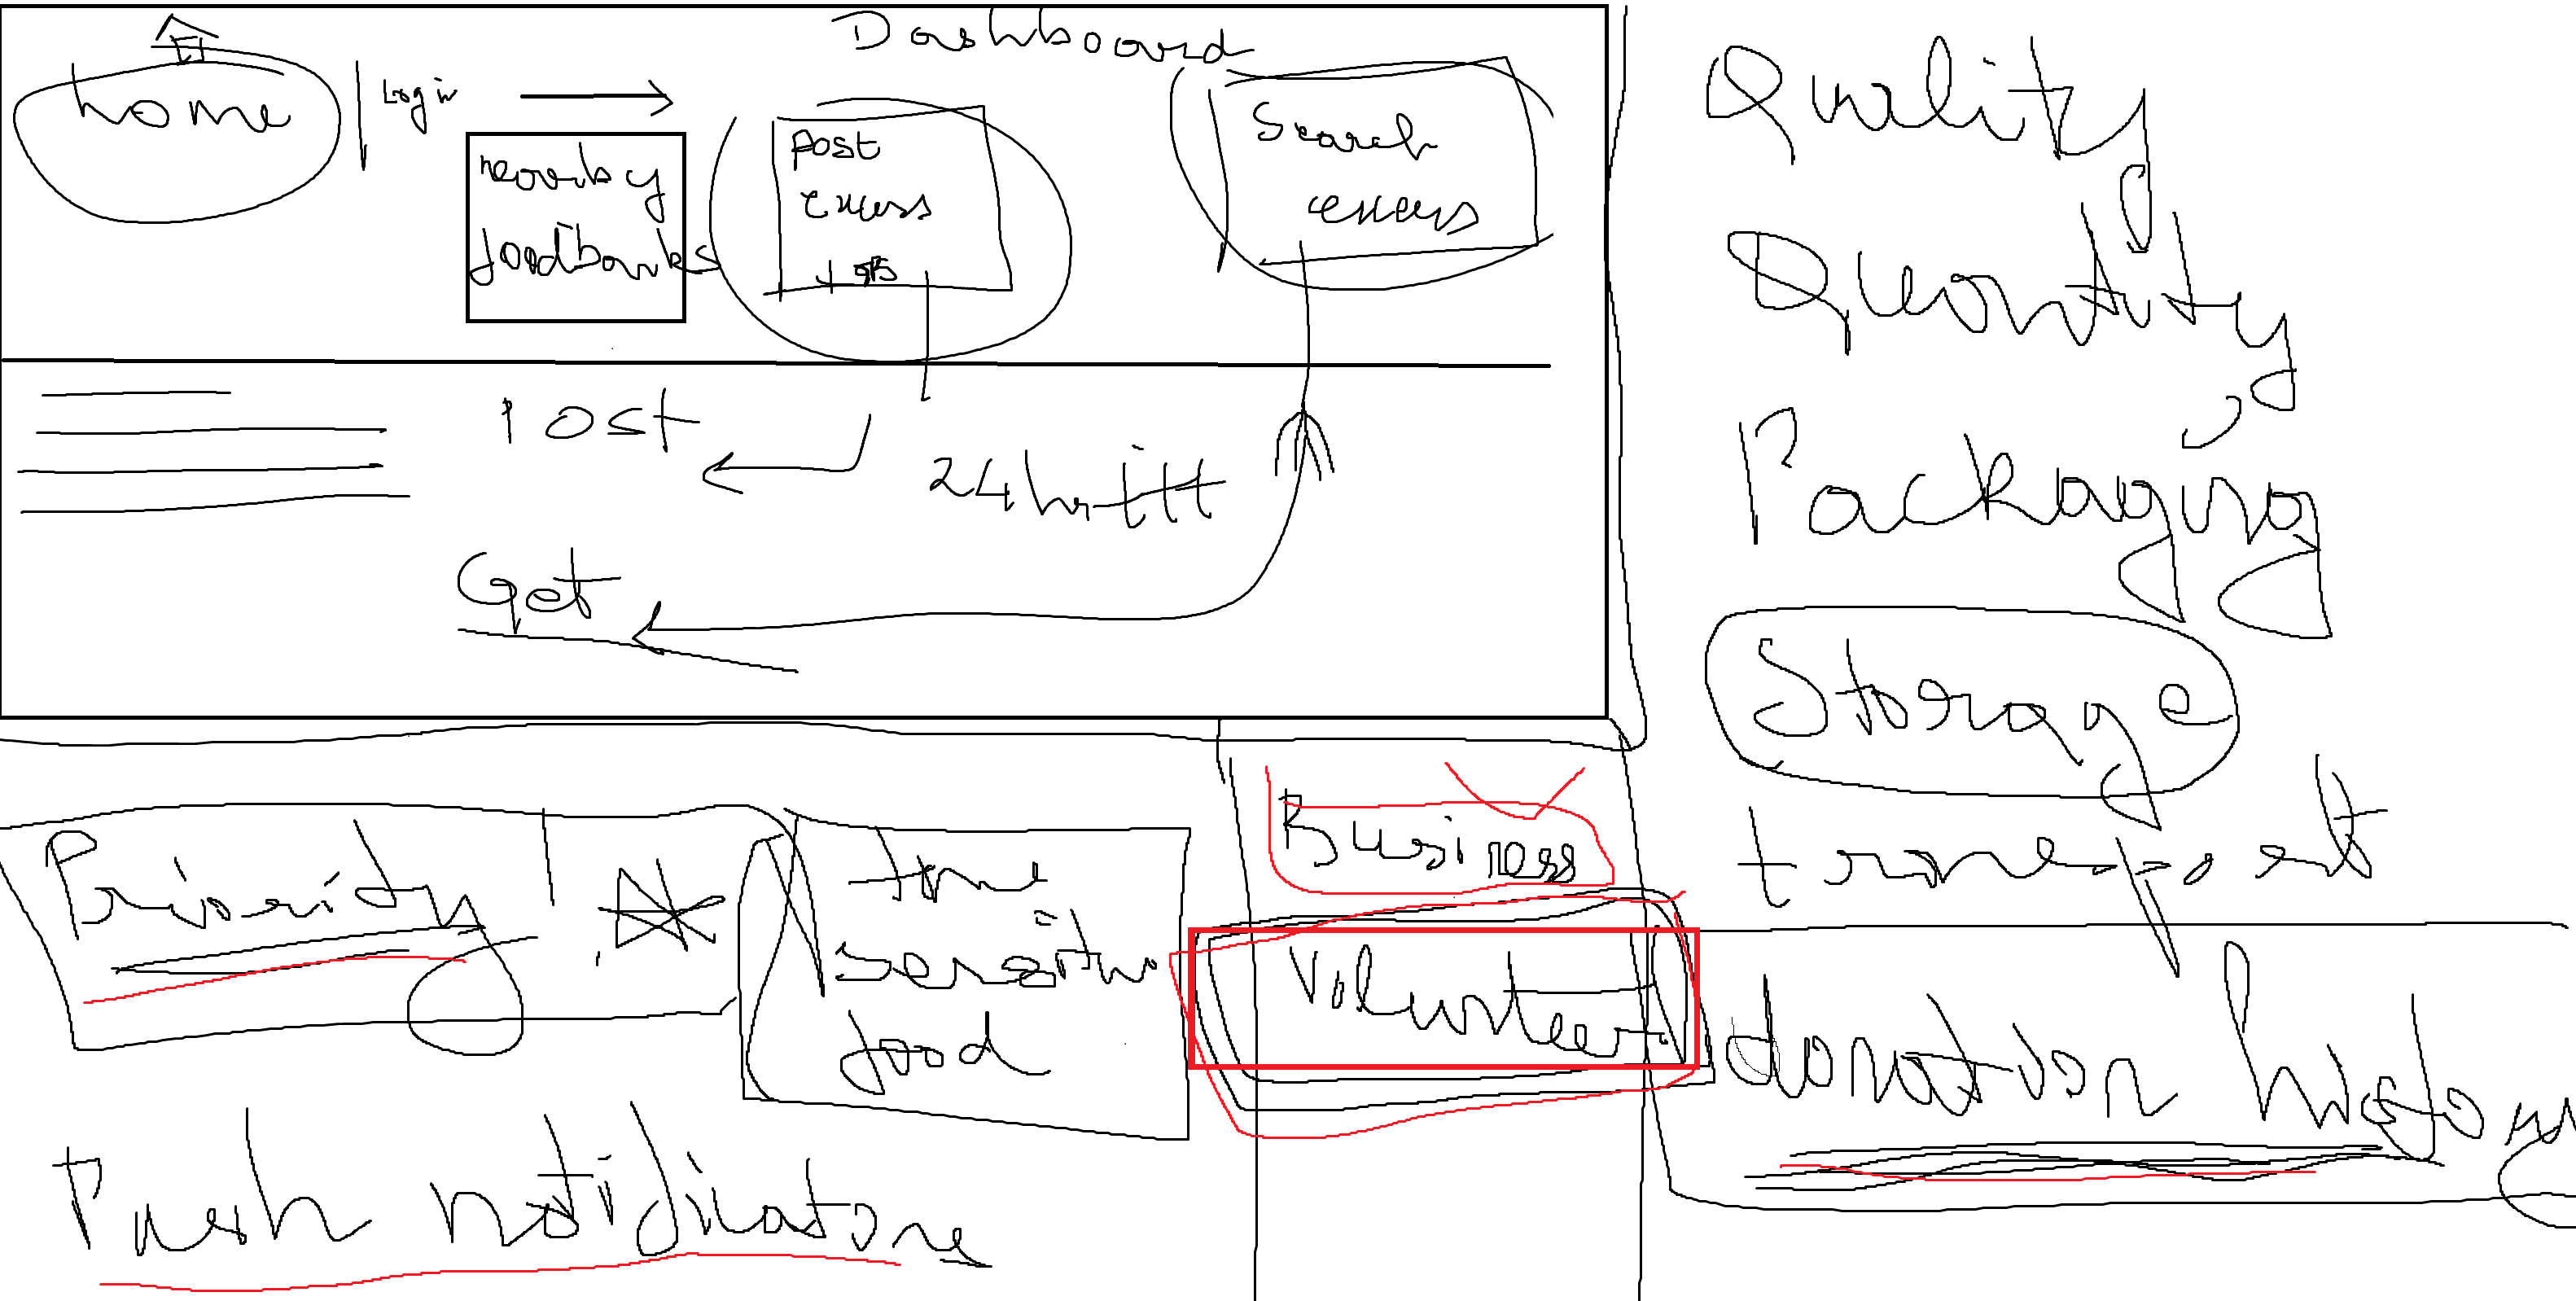 Dashboard
home
Login
nearby
foodbanks
Post
excess
Search
excess
Post
24 hr
Get
Quality,
Quantity,
Packaging
Storage
transport
Priority
time
sensitive
food
Business
Volunteer
donation history
Push notifications